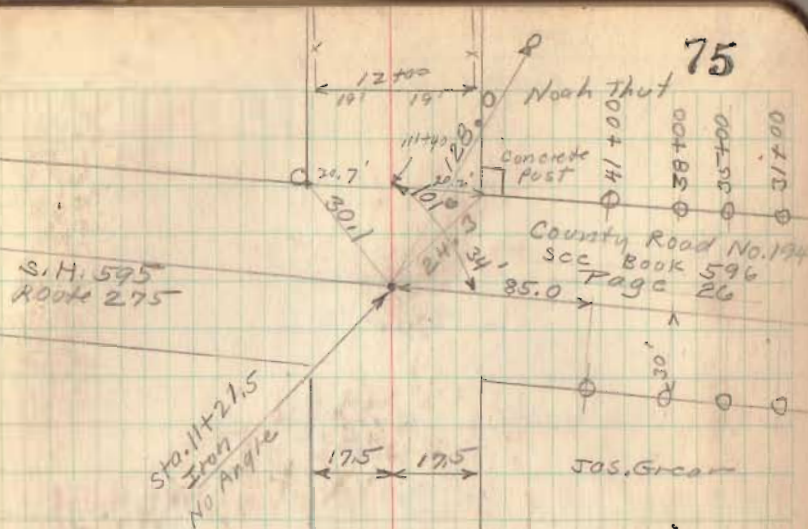 75
12+00
19' 19'
Noah Thut
128.
Concrete
Post
41+00
38+00
35+00
31+00
20.7'
30.1
24.3
34'
County Road No.194
See Book 596
Page 26
S.H. 595
Route 275
85.0
30'
Sta. 11+21.5
Iron
No Angle
17.5 17.5
Jos. Grear